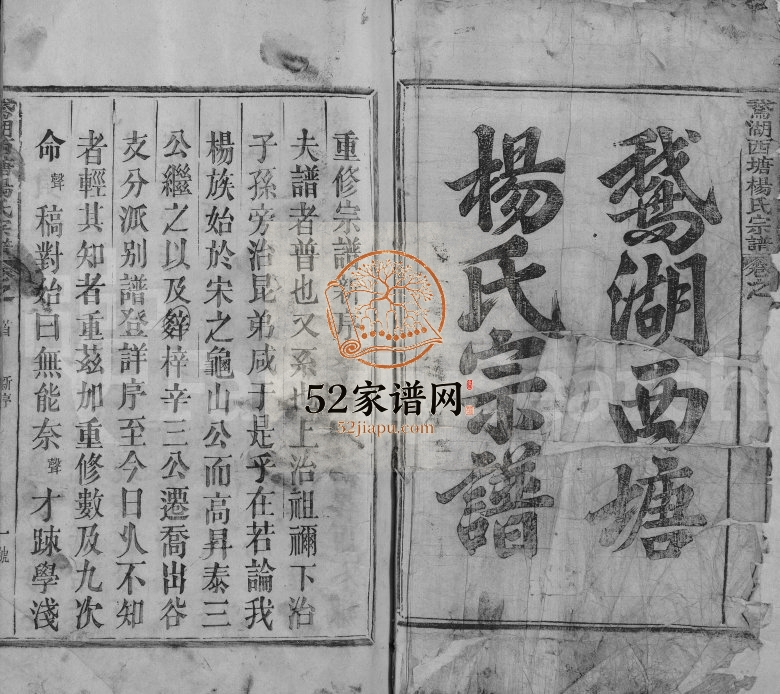 鵞湖西塘楊氏宗譜卷之
鵞湖西塘
楊氏宗譜
重修宗譜新序
夫譜者普也又系也上治祖禰下治
子孫旁治昆弟咸于是乎在若論我
楊族始於宋之龜山公而高昇泰三
公繼之以及薛梓辛三公遷喬出谷
支分派别譜登詳序至今日乆不知
者輕其知者重茲加重修數及九次
命聲稿對始曰無能奈聲才踈學淺
新序
一號
52家谱网
52jiapu.com